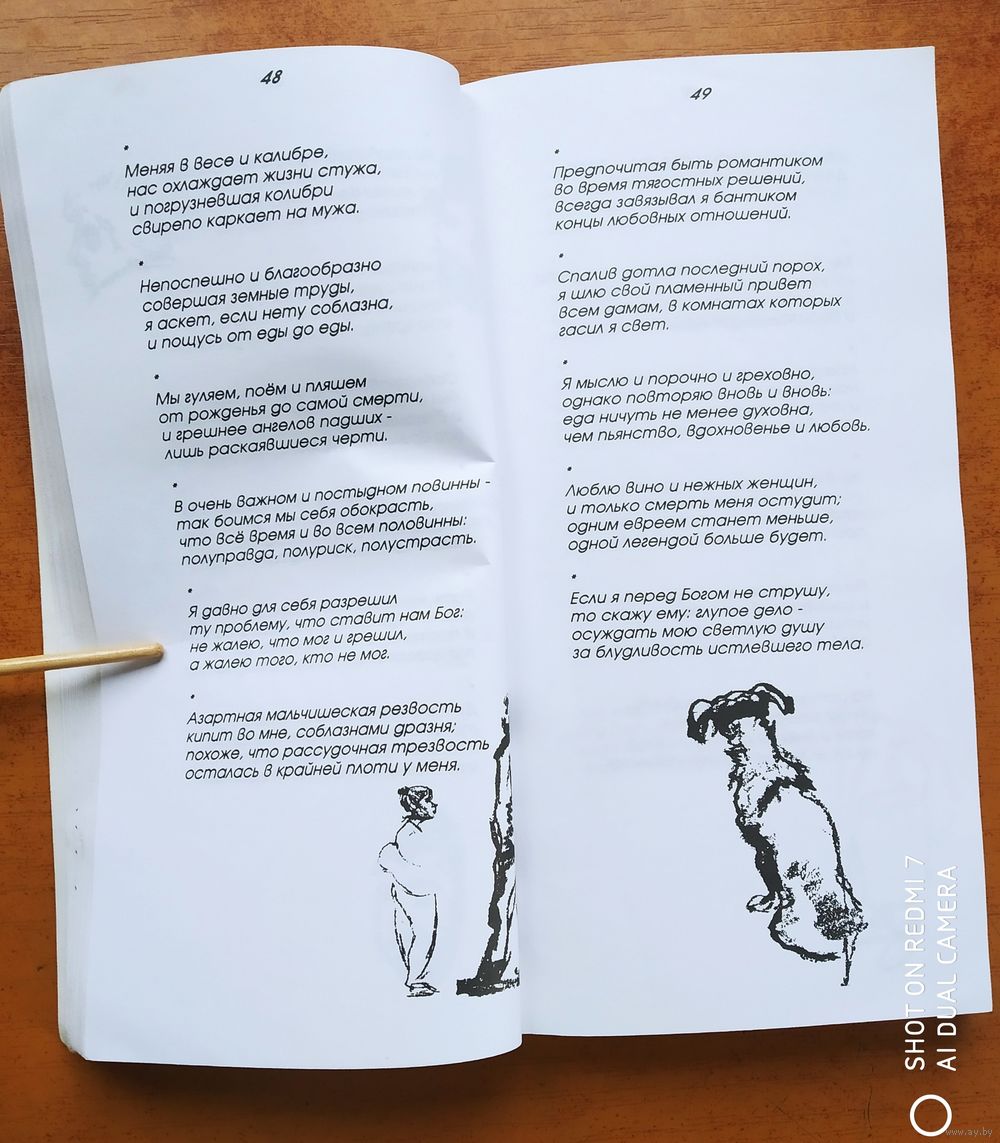 48
*
Меняя в весе и калибре,
нас охлаждает жизни стужа,
и погрузневшая колибри
свирепо каркает на мужа.
*
Непоспешно и благообразно
совершая земные труды,
я аскет, если нету соблазна,
и пощусь от еды до еды.
*
Мы гуляем, поём и пляшем
от рожденья до самой смерти,
и грешнее ангелов падших -
лишь раскаявшиеся черти.
*
В очень важном и постыдном повинны -
так боимся мы себя обокрасть,
что всё время и во всем половинны:
полуправда, полуриск, полустрасть.
*
Я давно для себя разрешил
ту проблему, что ставит нам Бог:
не жалею, что мог и грешил,
а жалею того, кто не мог.
*
Азартная мальчишеская резвость
кипит во мне, соблазнами дразня;
похоже, что рассудочная трезвость
осталась в крайней плоти у меня.
49
*
Предпочитая быть романтиком
во время тягостных решений,
всегда завязывал я бантиком
концы любовных отношений.
*
Спалив дотла последний порох,
я шлю свой пламенный привет
всем дамам, в комнатах которых
гасил я свет.
*
Я мыслю и порочно и греховно,
однако повторяю вновь и вновь:
еда ничуть не менее духовна,
чем пьянство, вдохновенье и любовь.
*
Люблю вино и нежных женщин,
и только смерть меня остудит;
одним евреем станет меньше,
одной легендой больше будет.
*
Если я перед Богом не струшу,
то скажу ему: глупое дело -
осуждать мою светлую душу
за блудливость истлевшего тела.
SHOT ON REDMI 7
AI DUAL CAMERA
www.ay.by